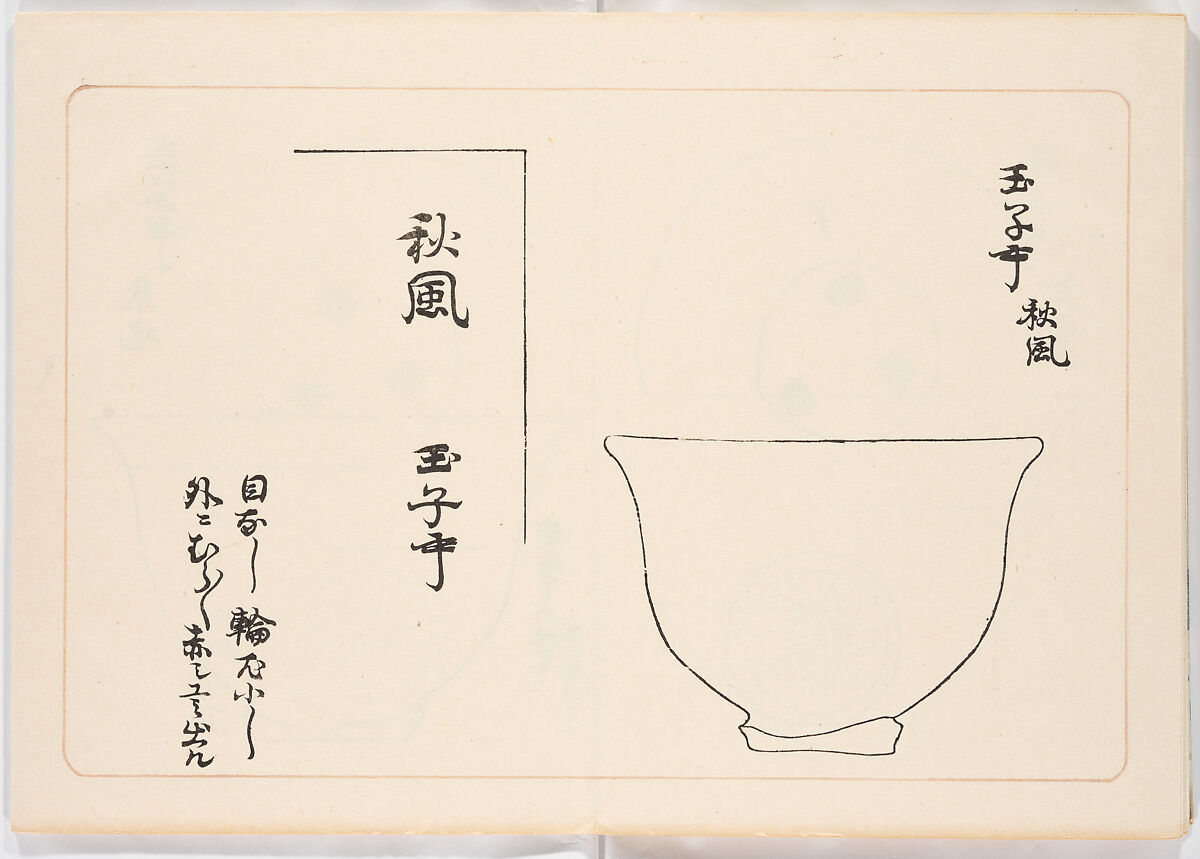 玉子手
秋風
秋風
玉子手
目なし 輪 小し
外ニむら〳〵赤ミ 出ル